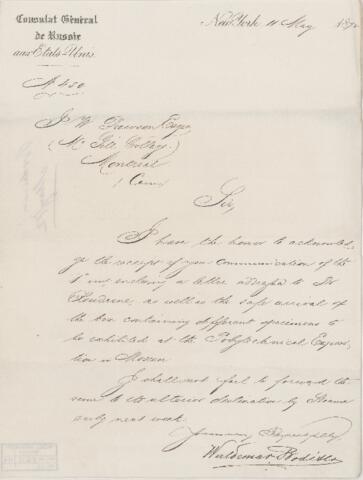 Consulat Général
de Russie
aux États-Unis.
New York 11 May 187
No 450
J W Dawson Esqre
(Mc Gill College)
Montreal
Sir,
I have the honor to acknowled-
ge the receipt of your communication of the
1st inst enclosing a letter address to Dr
as well as the safe arrival of
the box containing different specimens to
be exhibited at the Polytechnical Exposi
tion in Moscow
I shall not fail to forward the
same to its ulterior destination by
early next week.
Respectfully
Waldemar Bodisco